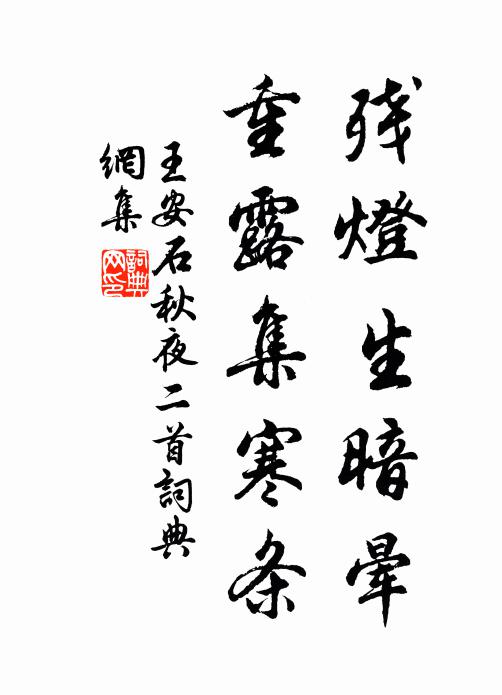 残燈生暗暈
重露集寒条
王安石秋夜二首詞典
網集
詞典网印